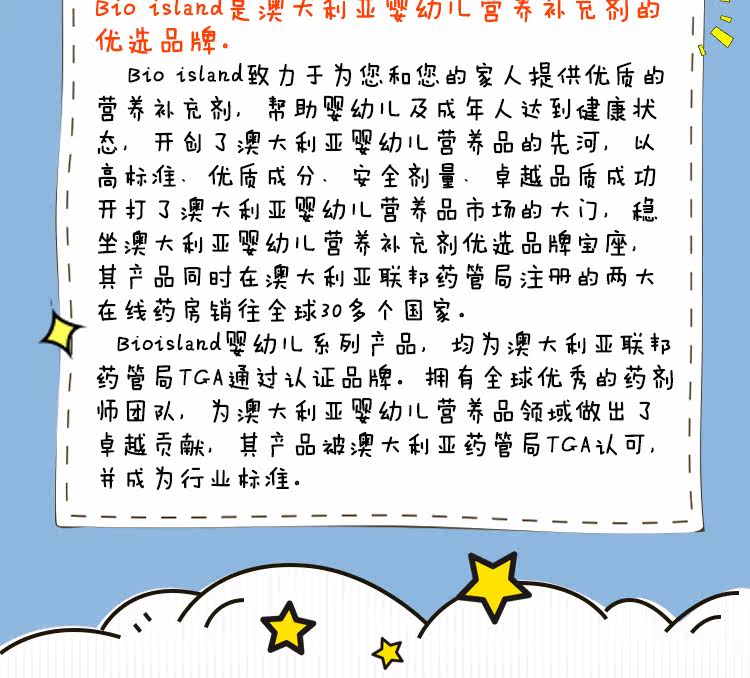 Bio island是澳大利亚婴幼儿营养补充剂的
优选品牌。
Bio island致力于为您和您的家人提供优质的
营养补充剂，帮助婴幼儿及成年人达到健康状
态，开创了澳大利亚婴幼儿营养品的先河，以
高标准、优质成分、安全剂量、卓越品质成功
开打了澳大利亚婴幼儿营养品市场的大门，稳
坐澳大利亚婴幼儿营养补充剂优选品牌宝座，
其产品同时在澳大利亚联邦药管局注册的两大
在线药房销往全球30多个国家。
Bioisland婴幼儿系列产品，均为澳大利亚联邦
药管局TGA通过认证品牌。拥有全球优秀的药剂
师团队，为澳大利亚婴幼儿营养品领域做出了
卓越贡献，其产品被澳大利亚药管局TGA认可，
并成为行业标准。